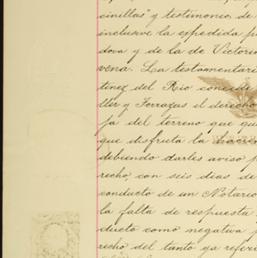 cinillas" y testimonio de
inclusive la expedida p
dova y de la de Victori
vena. La testamentari
tinez del Rio concede
ller y Terrazas el derecho
ja del terreno que qu
que disfruta la
debiendo darles aviso p
recho, con seis dias de
conducto de un Notario
la falta de respuesta
ducto como negativa p
recho del tanto ya referi